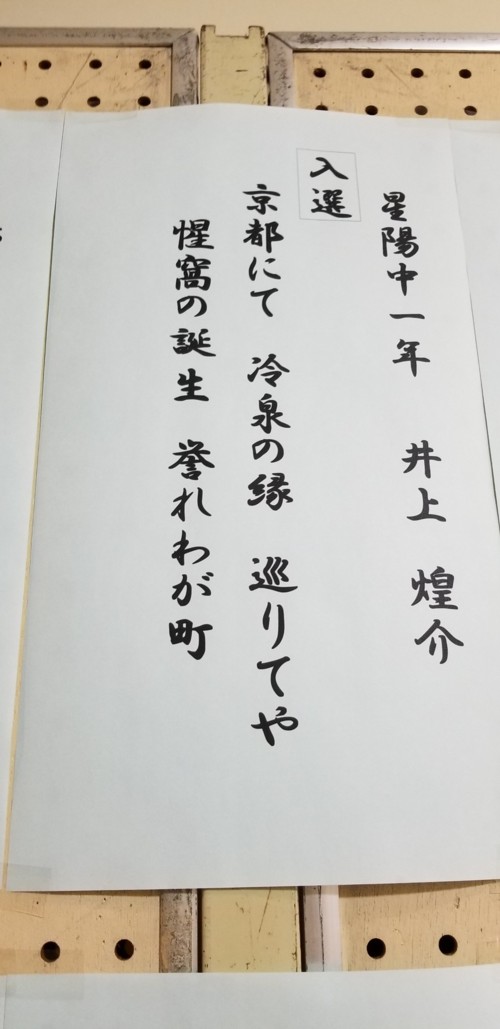 星陽中一年　井上　煌介
入選
京都にて　冷泉の縁　巡りてや
惺窩の誕生　誉れわが町